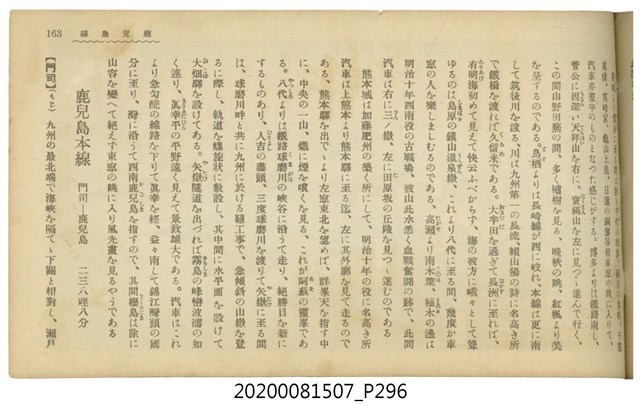 163 鹿兒島線
汽車亦靈中のものとなつた感じがする。博多よりは鐵路南し、
菅公に因深い天拜山を右に、寶滿山を左に見つゝ進んで行く、
この間野田藍の間、多く櫨樹を見る、晩秋の眺、紅楓より美
を呈するのである。鳥栖よりは長崎線が西に岐れ、本線は更に南
して筑後川を渡る、川は九州第一の長流、頼山陽の詩に名高き所
で鐵橋を渡れば久留米である。大牟田を過ぎて長洲に至れば、
有明海初めて見えて快云ふべからず、海の彼方に峨々として聳
ゆるのは島原の溫泉嶽、これより八代に至る間、幾度か車
窓の人を樂しましむるのである。高瀬より南木葉、植木の邊は
明治十年西南役の古戰場、彼山此水悉く血戰奮鬪の跡で、此間
汽車は右に三ノ嶽、左に田原坂の丘陵を見つゝ進むのである
熊本城は加藤肥州の築く所にして、明治十年の役に名高き所
汽車は上熊本より熊本驛に至る迄、左に其外廓を見て走るので
ある、熊本驛を出でゝより左窓東北を望めば、群峯天を指す中
に、中央の一山、巍に煙を噴くを見る、これが阿蘇の靈峯であ
る。八代よりは鐵路球磨川の峽谷に沿うて走り、絶勝目を新に
するものあり、人吉の盡頭、三度球磨川を渡りて矢嶽に至る間
は、球磨川畔と共に九州に於ける難工事で、急傾斜の山嶽を登
るに際し、軌道を螺旋狀に敷設し、其中間に水平面を設けて
大畑驛を設けてある。矢嶽隧道を出づれば霧島の峰巒波濤の如
く連り、眞幸平の平野遠く見えて景致雄大である。汽車はこれ
より急勾配の線路を下りて眞幸を經、益々南して錦江灣頭の國
分に至り、灣に沿うて西南鹿兒島を指すので、其間櫻島は除に
山容を變へて絶えず東窓の眺に入り風光畫を見るやうである
鹿兒島本線 門司―鹿兒島 二三八哩八分
【門司】(もじ) 九州の最北端で海峽を隔てゝ下關と相對し、瀨戸
20200081507_P296